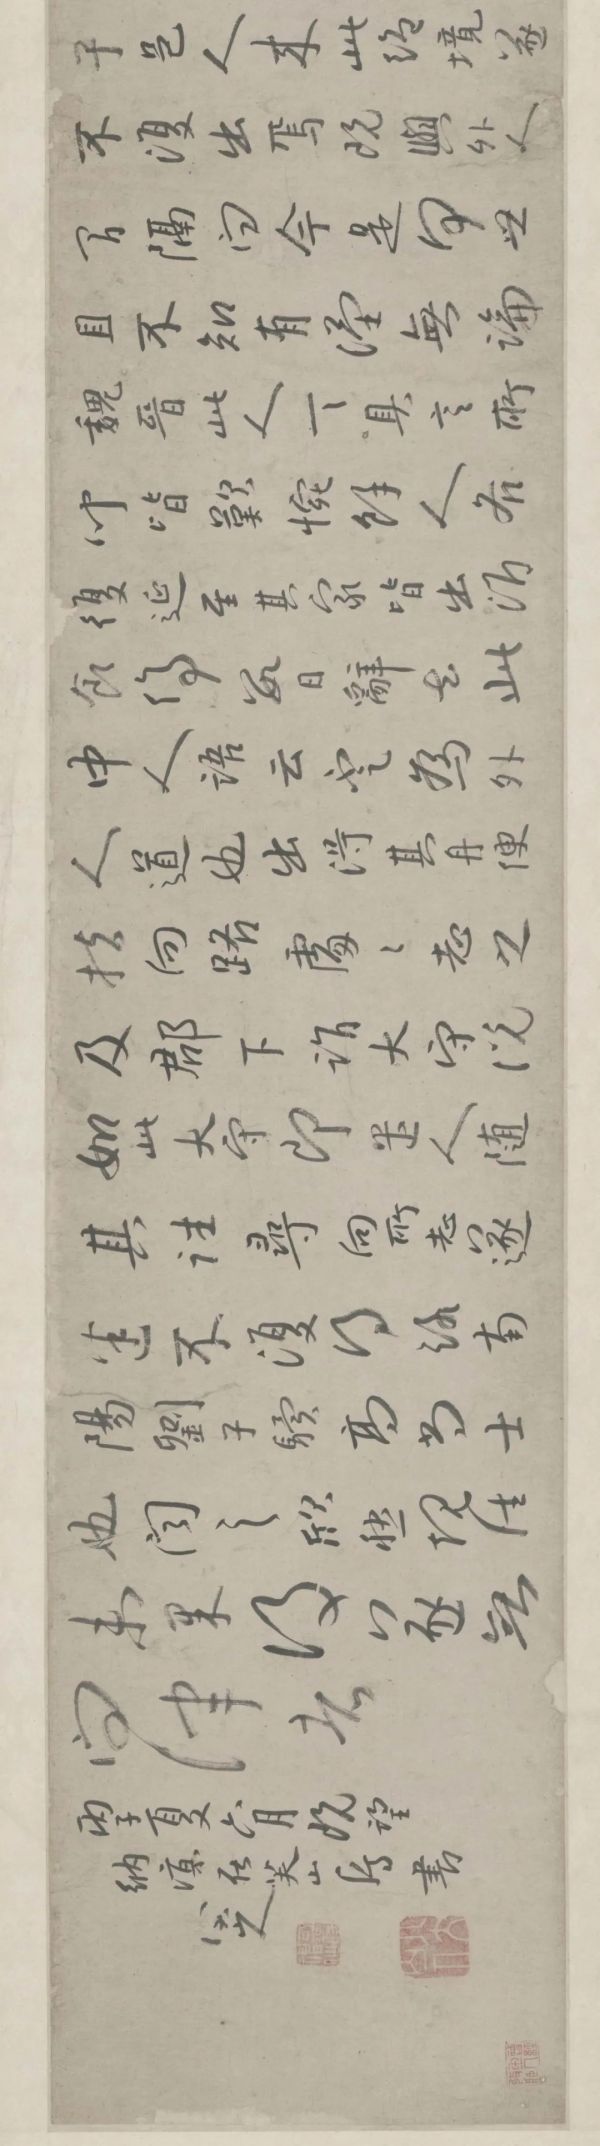 子邑人来此絕境遂
不復出焉既與外人
間隔問今是何世
且不知有漢無論
魏晉此人一一具言所
聞皆歎惋餘人各
復延至其家皆出酒
食停數日辭去此
中人語云不足為外
人道也出得其舟便
扶向路處〻志之
及郡下詣大守說
如此大守即遣人隨
其往尋向所志遂
迷不復得路南
陽劉子驥高尚士
也聞之欣然規往
未果後遂無
問津者
丙子夏六月既望
納涼在芙山房書
八大山人